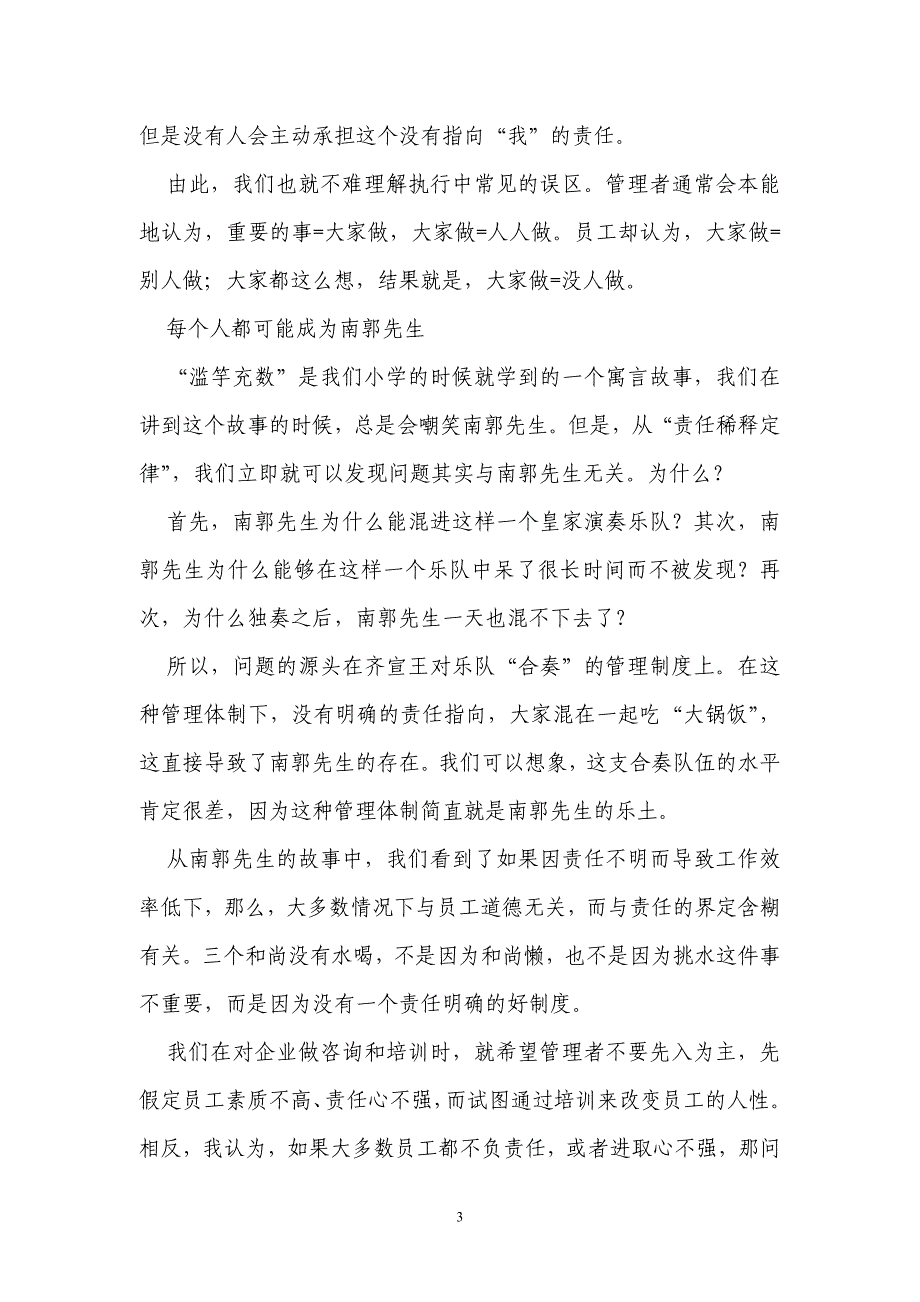 但是没有人会主动承担这个没有指向“我”的责任。
由此，我们也就不难理解执行中常见的误区。管理者通常会本能
地认为，重要的事=大家做，大家做=人人做。员工却认为，大家做=
别人做；大家都这么想，结果就是，大家做=没人做。
每个人都可能成为南郭先生
“滥竽充数”是我们小学的时候就学到的一个寓言故事，我们在
讲到这个故事的时候，总是会嘲笑南郭先生。但是，从“责任稀释定
律”，我们立即就可以发现问题其实与南郭先生无关。为什么？
首先，南郭先生为什么能混进这样一个皇家演奏乐队？其次，南
郭先生为什么能够在这样一个乐队中呆了很长时间而不被发现？再
次，为什么独奏之后，南郭先生一天也混不下去了？
所以，问题的源头在齐宣王对乐队“合奏”的管理制度上。在这
种管理体制下，没有明确的责任指向，大家混在一起吃“大锅饭”，
这直接导致了南郭先生的存在。我们可以想象，这支合奏队伍的水平
肯定很差，因为这种管理体制简直就是南郭先生的乐土。
从南郭先生的故事中，我们看到了如果因责任不明而导致工作效
率低下，那么，大多数情况下与员工道德无关，而与责任的界定含糊
有关。三个和尚没有水喝，不是因为和尚懒，也不是因为挑水这件事
不重要，而是因为没有一个责任明确的好制度。
我们在对企业做咨询和培训时，就希望管理者不要先入为主，先
假定员工素质不高、责任心不强，而试图通过培训来改变员工的人性。
相反，我认为，如果大多数员工都不负责任，或者进取心不强，那问
3